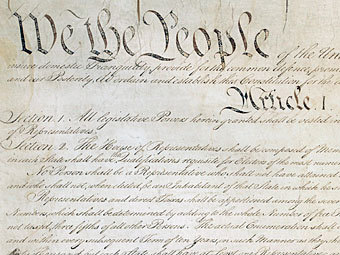 We the People of the Uni
insure domestic Tranquility, provide for the common defence, prom
and our Posterity, do ordain and establish this Constitution for the
Article. I.
Section. 1. All legislative Powers herein granted shall be vested in
of Representatives.
Section. 2. The House of Representatives shall be composed of Mem
in each State shall have the Qualifications requisite for Electors of the most numer
No Person shall be a Representative who shall not have attained
and who shall not, when elected, be an Inhabitant of that State in which he
Representatives and direct Taxes shall be apportioned among the seve
Numbers, which shall be determined by adding to the whole Number of free P
not taxed, three fifths of all other Persons. The actual Enumeration shall
and within every subsequent Term of ten Years, in such Manner as they sha